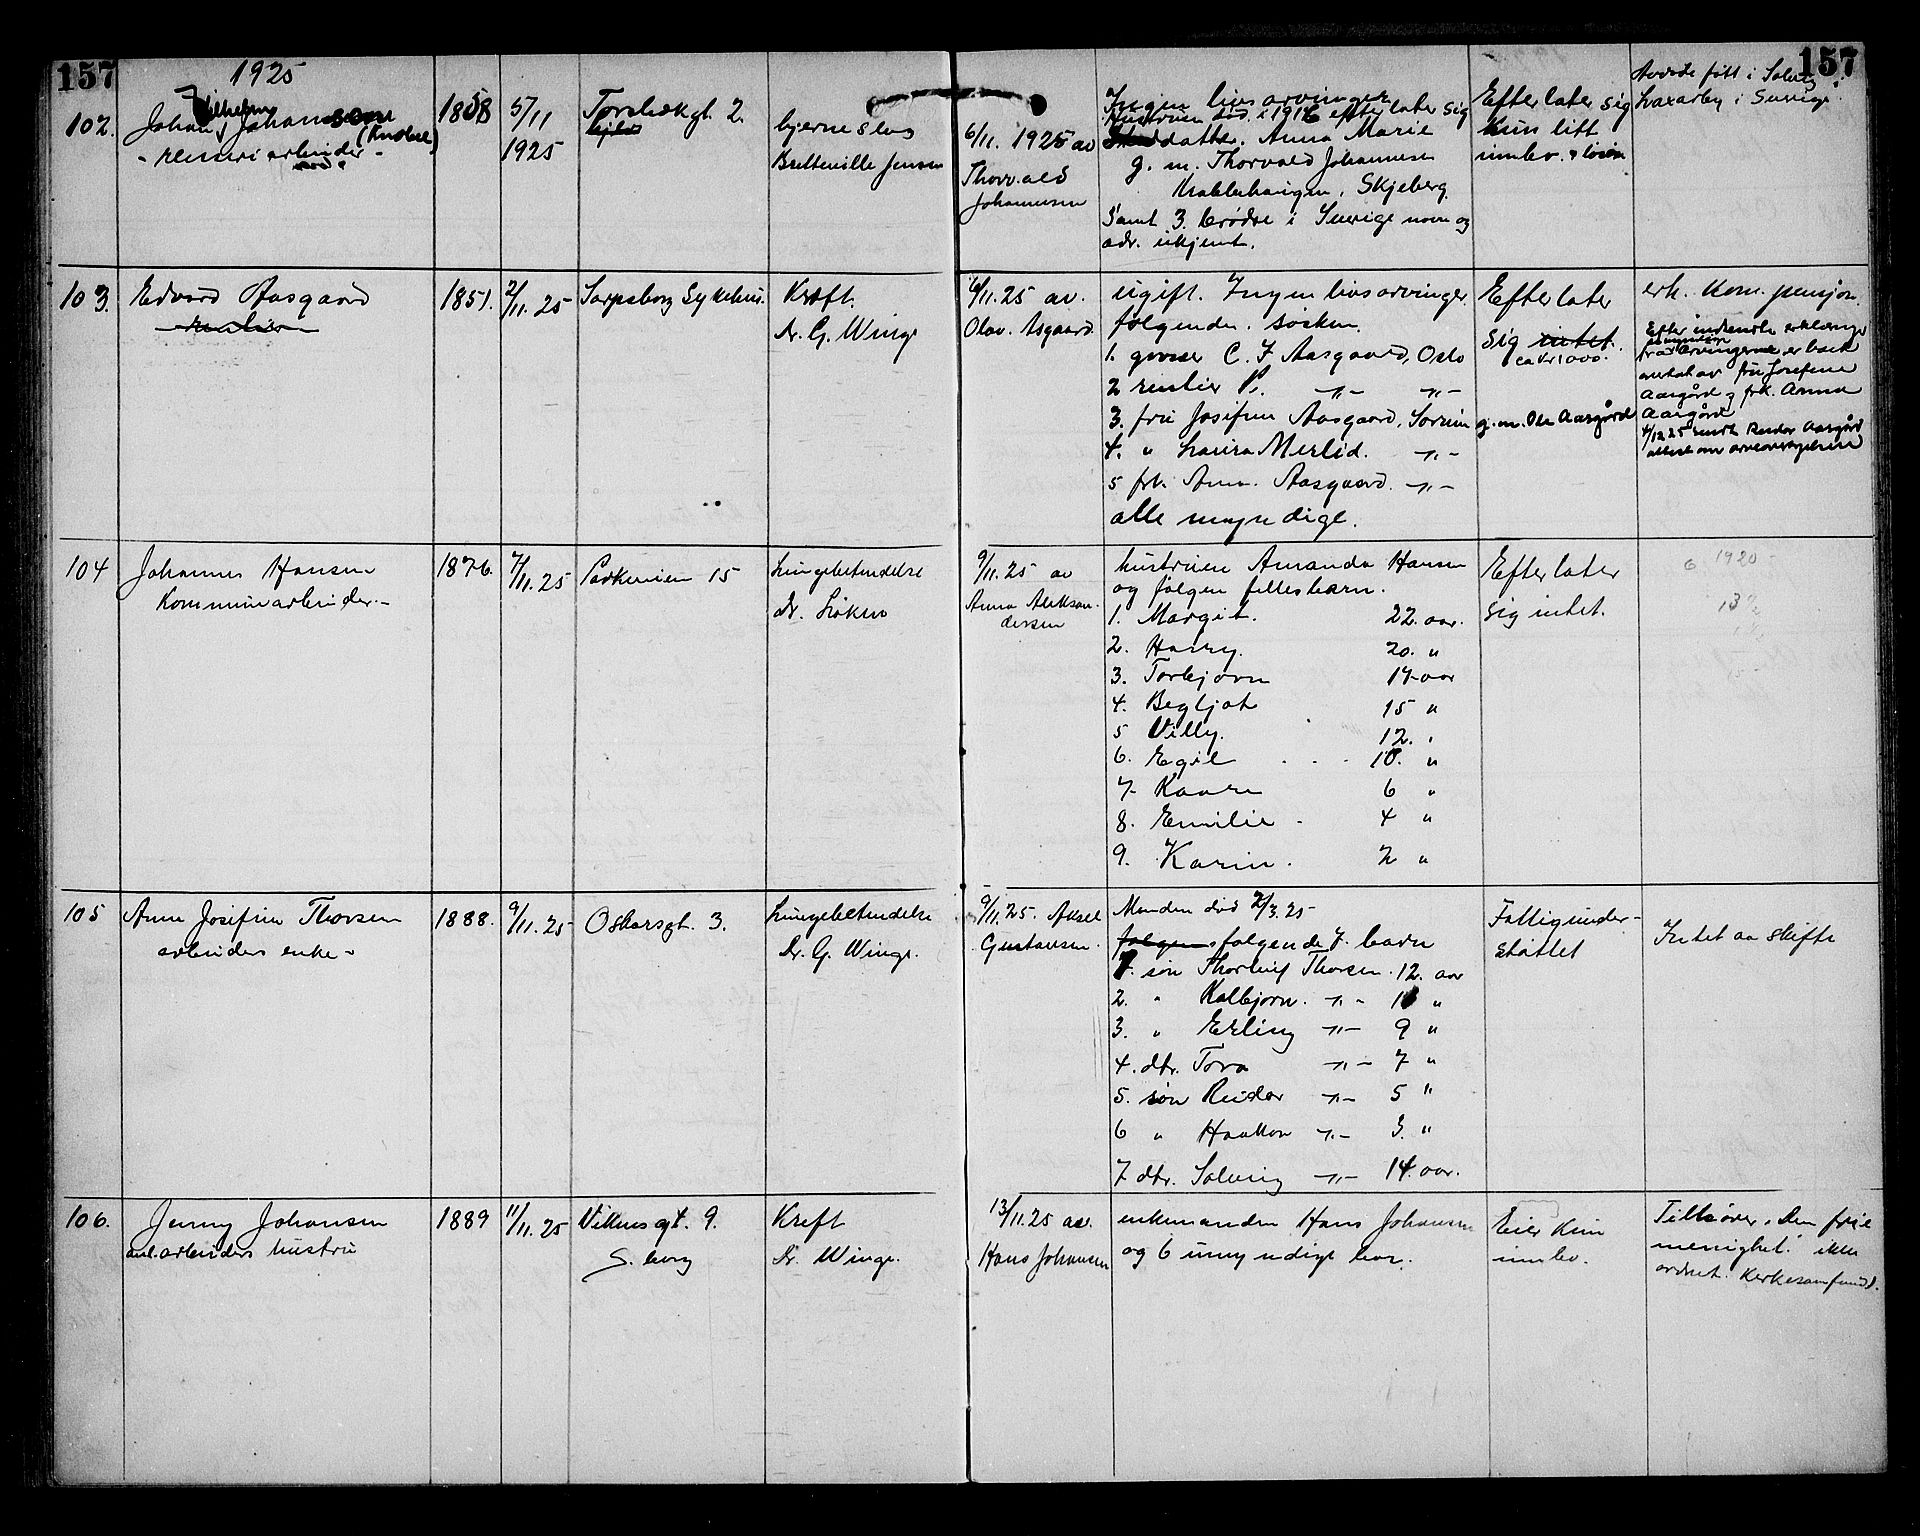 157
1925
157
102.
Johan Vilhelm Johansson
(Knobel)
- renseriarbeider -
1858
5/11
1925
Torsbækgt. 2.
hjerneslag
Bretteville Jensen
6/11. 1925 av
Thorvald
Johannesen
Ingen livsarvinger
Hustruen død i 1916 efterlater sig
datter. Anna Marie
g. m. Thorvald Johannesen
Skjeberg.
Samt 3. brødre i Sverige navn og
adr. ukjent.
Efterlater sig
kun litt
innbo. & løsøre
Avøde født i
i Sverige.
103.
Edvard Aasgaard
rentier
1851.
2/11. 25
Sarpsborg Sykehus.
Kræft.
Dr. G. Winge
6/11. 25 av.
Olav. Asgaard
ugift. Ingen livsarvinger.
følgende. søsken.
1. grosser C. F. Aasgaard, Oslo
2 rentier P. -"- -"-
3. fru Josefine Aasgaard, Sorum g. m. Ole Aasgård
4. " Laura Merlid. -"-
5 frk. Anna. Aasgaard. -"-
alle myndige.
Efterlater
sig intet.
ca kr 1000.
erk. Kom. pensjon.
Efter innsendte erklæringer
fra arvingerne er boet
overtat av fru Josefine
Aasgård og frk. Anna
Aasgård
4/12 25 sendt Reidar Aasgård
attest om arveovertagelsen
104
Johannes Hansen
Kommunearbeider. -
1876.
7/11. 25
Parkveien 15
Lungebetendelse
Dr. Løken
9/11. 25 av
Anna Aleksan-
dersen
hustruen Amanda Hansen
og følgen fellesbarn.
1. Margit. 22. aar.
2. Harry. 20. "
3. Torbjørn 17 aar
4. Bergljot 15 "
5 Villy. 12. "
6. Egil 10. "
7. Kaare 6 "
8. Emilie 4 "
9. Karin. 2 "
Efterlater
sig intet.
1920
105
Anna Josefine Thorsen
arbeiders enke -
1888.
9/11. 25
Oskarsgt. 3.
Lungebetendelse
Dr. G. Winge.
9/11. 25. Aksel
Gustavsen.
Manden død 2/3. 25
følgen følgende 7. barn
1. søn Thorleif Thorsen. 12. aar
2. " Kolbjørn. -"- "
3. " Erling -"- 9 "
4. dtr. Tora -"- 7 "
5. søn Reidar -"- 5 "
6 " Haakon -"- 3. "
7. dtr. Solveig -"- 14. aar.
Fattigunder-
støttet
Intet aa skifte
106.
Jenny Johansen
anl. arbeiders hustru
1889
11/11. 25
Vikensgt. 9.
S. borg
Kreft
Dr. Winge.
13/11. 25 av.
Hans Johansen
enkemanden Hans Johansen
og 6 umyndige barn.
Eier kun
innbo.
Tilhører "Den frie
menighet." ikke
ordnet. Kirkesamfund.